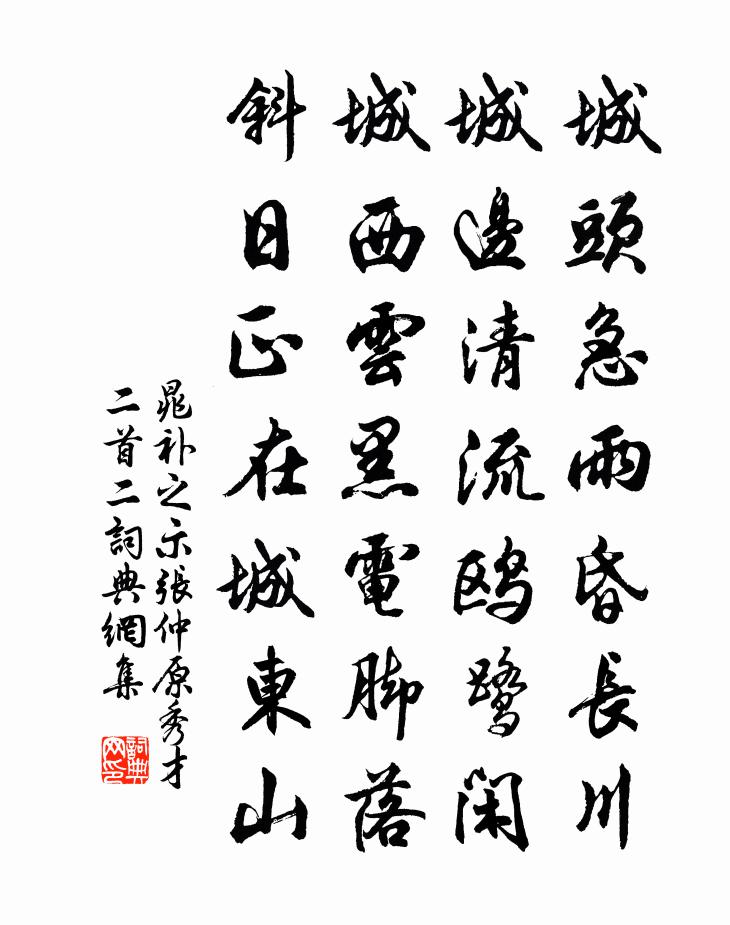 城頭急雨昏長川
城邊清流鷗鷺閑
城西雲黑電脚落
斜日正在城東山
晁补之示張仲原秀才
二首二詞典網集
詞典
网印